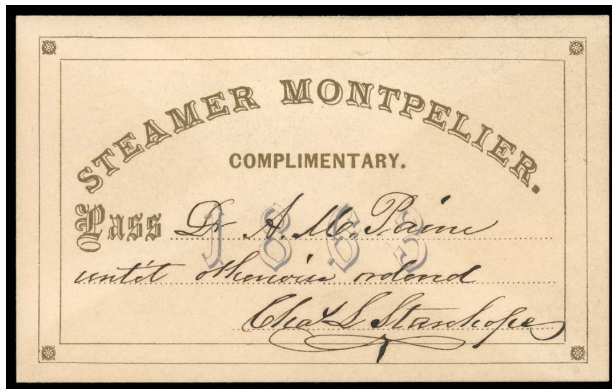 STEAMER MONTPELIER.
COMPLIMENTARY.
Pass Dr A. M. Paine
1863
until otherwise ordered
Chas L Stanhope